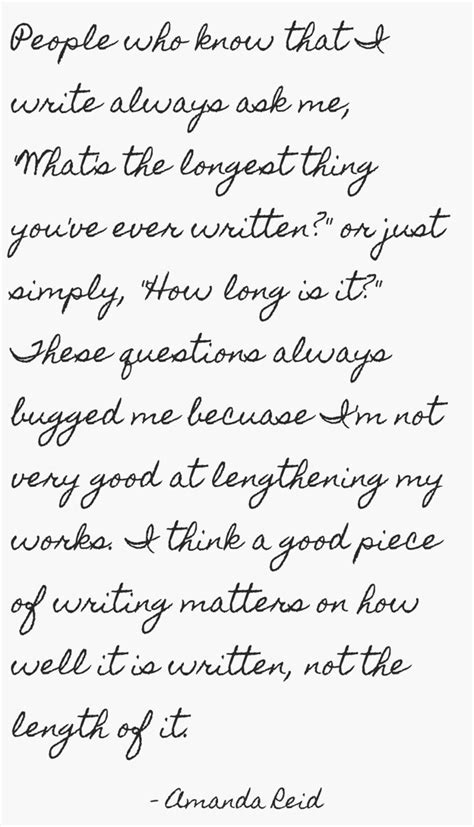 People who know that I
write always ask me,
"What's the longest thing
you've ever written?" or just
simply, "How long is it?"
These questions always
bugged me becuase I'm not
very good at lengthening my
works. I think a good piece
of writing matters on how
well it is written, not the
length of it.
- Amanda Reid